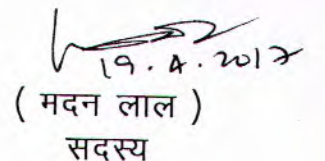 19.4.2017
( मदन लाल )
सदस्य